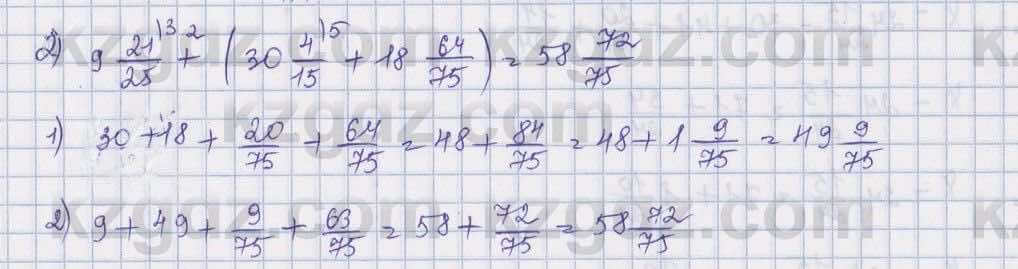 2) 9 21/25 )3 2 + ( 30 4/15 )5 + 18 64/75 ) = 58 72/75
1) 30 + 18 + 20/75 + 64/75 = 48 + 84/75 = 48 + 1 9/75 = 49 9/75
2) 9 + 49 + 9/75 + 63/75 = 58 + 72/75 = 58 72/75